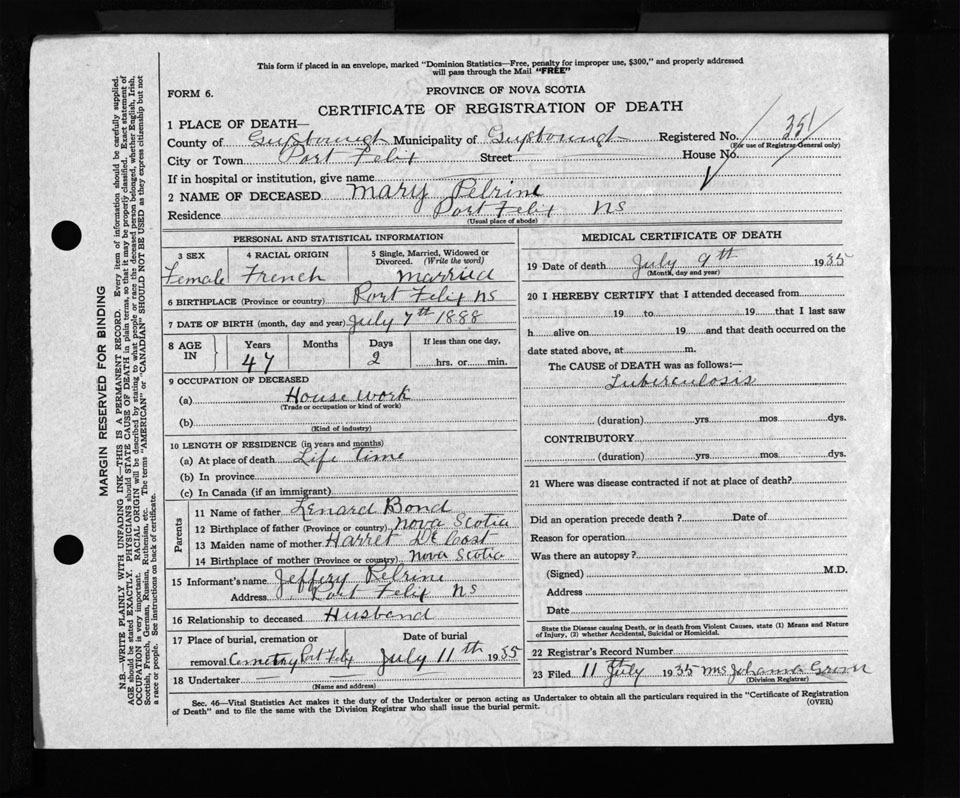 This form if placed in an envelope, marked "Dominion Statistics—Free, penalty for improper use, $300," and properly addressed
will pass through the Mail "FREE"
FORM 6.
PROVINCE OF NOVA SCOTIA
CERTIFICATE OF REGISTRATION OF DEATH
1 PLACE OF DEATH—
County of Guysborough Municipality of Guysborough Registered No. 351
(For use of Registrar General only)
City or Town Port Felix Street House No.
If in hospital or institution, give name
2 NAME OF DECEASED Mary Pelrine
Residence Port Felix NS
(Usual place of abode)
PERSONAL AND STATISTICAL INFORMATION
3 SEX 4 RACIAL ORIGIN 5 Single, Married, Widowed or
Divorced. (Write the word)
Female French Married
6 BIRTHPLACE (Province or country) Port Felix NS
7 DATE OF BIRTH (month, day and year) July 7th 1888
8 AGE IN Years Months Days If less than one day,
47 2 hrs. or min.
9 OCCUPATION OF DECEASED
(a) House work
(Trade or occupation or kind of work)
(b)
(Kind of industry)
10 LENGTH OF RESIDENCE (in years and months)
(a) At place of death Life time
(b) In province
(c) In Canada (if an immigrant)
Parents
11 Name of father Lenard Bond
12 Birthplace of father (Province or country) Nova Scotia
13 Maiden name of mother Harret De Cost
14 Birthplace of mother (Province or country) Nova Scotia
15 Informant's name Jeffery Pelrine
Address Port Felix NS
16 Relationship to deceased Husband
17 Place of burial, cremation or Date of burial
removal Cemetery Port Felix July 11th 1935
18 Undertaker
(Name and address)
MEDICAL CERTIFICATE OF DEATH
19 Date of death July 9th 1935
(Month, day and year)
20 I HEREBY CERTIFY that I attended deceased from
19 to 19 that I last saw
h alive on 19 and that death occurred on the
date stated above, at m.
The CAUSE OF DEATH was as follows:—
Tuberculosis
(duration) yrs mos dys.
CONTRIBUTORY
(duration) yrs mos dys.
21 Where was disease contracted if not at place of death?
Did an operation precede death ? Date of
Reason for operation
Was there an autopsy?
(Signed) M.D.
Address
Date
State the Disease causing Death, or in death from Violent Causes, state (1) Means and Nature
of Injury, (2) whether Accidental, Suicidal or Homicidal.
22 Registrar's Record Number
23 Filed 11th July 1935 Mrs Johanna
(Division Registrar)
Sec. 46—Vital Statistics Act makes it the duty of the Undertaker or person acting as Undertaker to obtain all the particulars required in the "Certificate of Registration
of Death" and to file the same with the Division Registrar who shall issue the burial permit.
(OVER)
MARGIN RESERVED FOR BINDING
N.B.—WRITE PLAINLY WITH UNFADING INK—THIS IS A PERMANENT RECORD. Every item of information should be carefully supplied.
AGE should be stated EXACTLY. PHYSICIANS should STATE CAUSE OF DEATH in plain terms, so that it may be properly classified. Exact statement of
OCCUPATION is very important. RACIAL ORIGIN will be described by stating to what people or race the deceased person belonged, whether English, Irish,
Scottish, French, German, Russian, Ruthenian, etc. The terms "AMERICAN" or "CANADIAN" SHOULD NOT BE USED as they express citizenship but not
a race or people. See instructions on back of certificate.